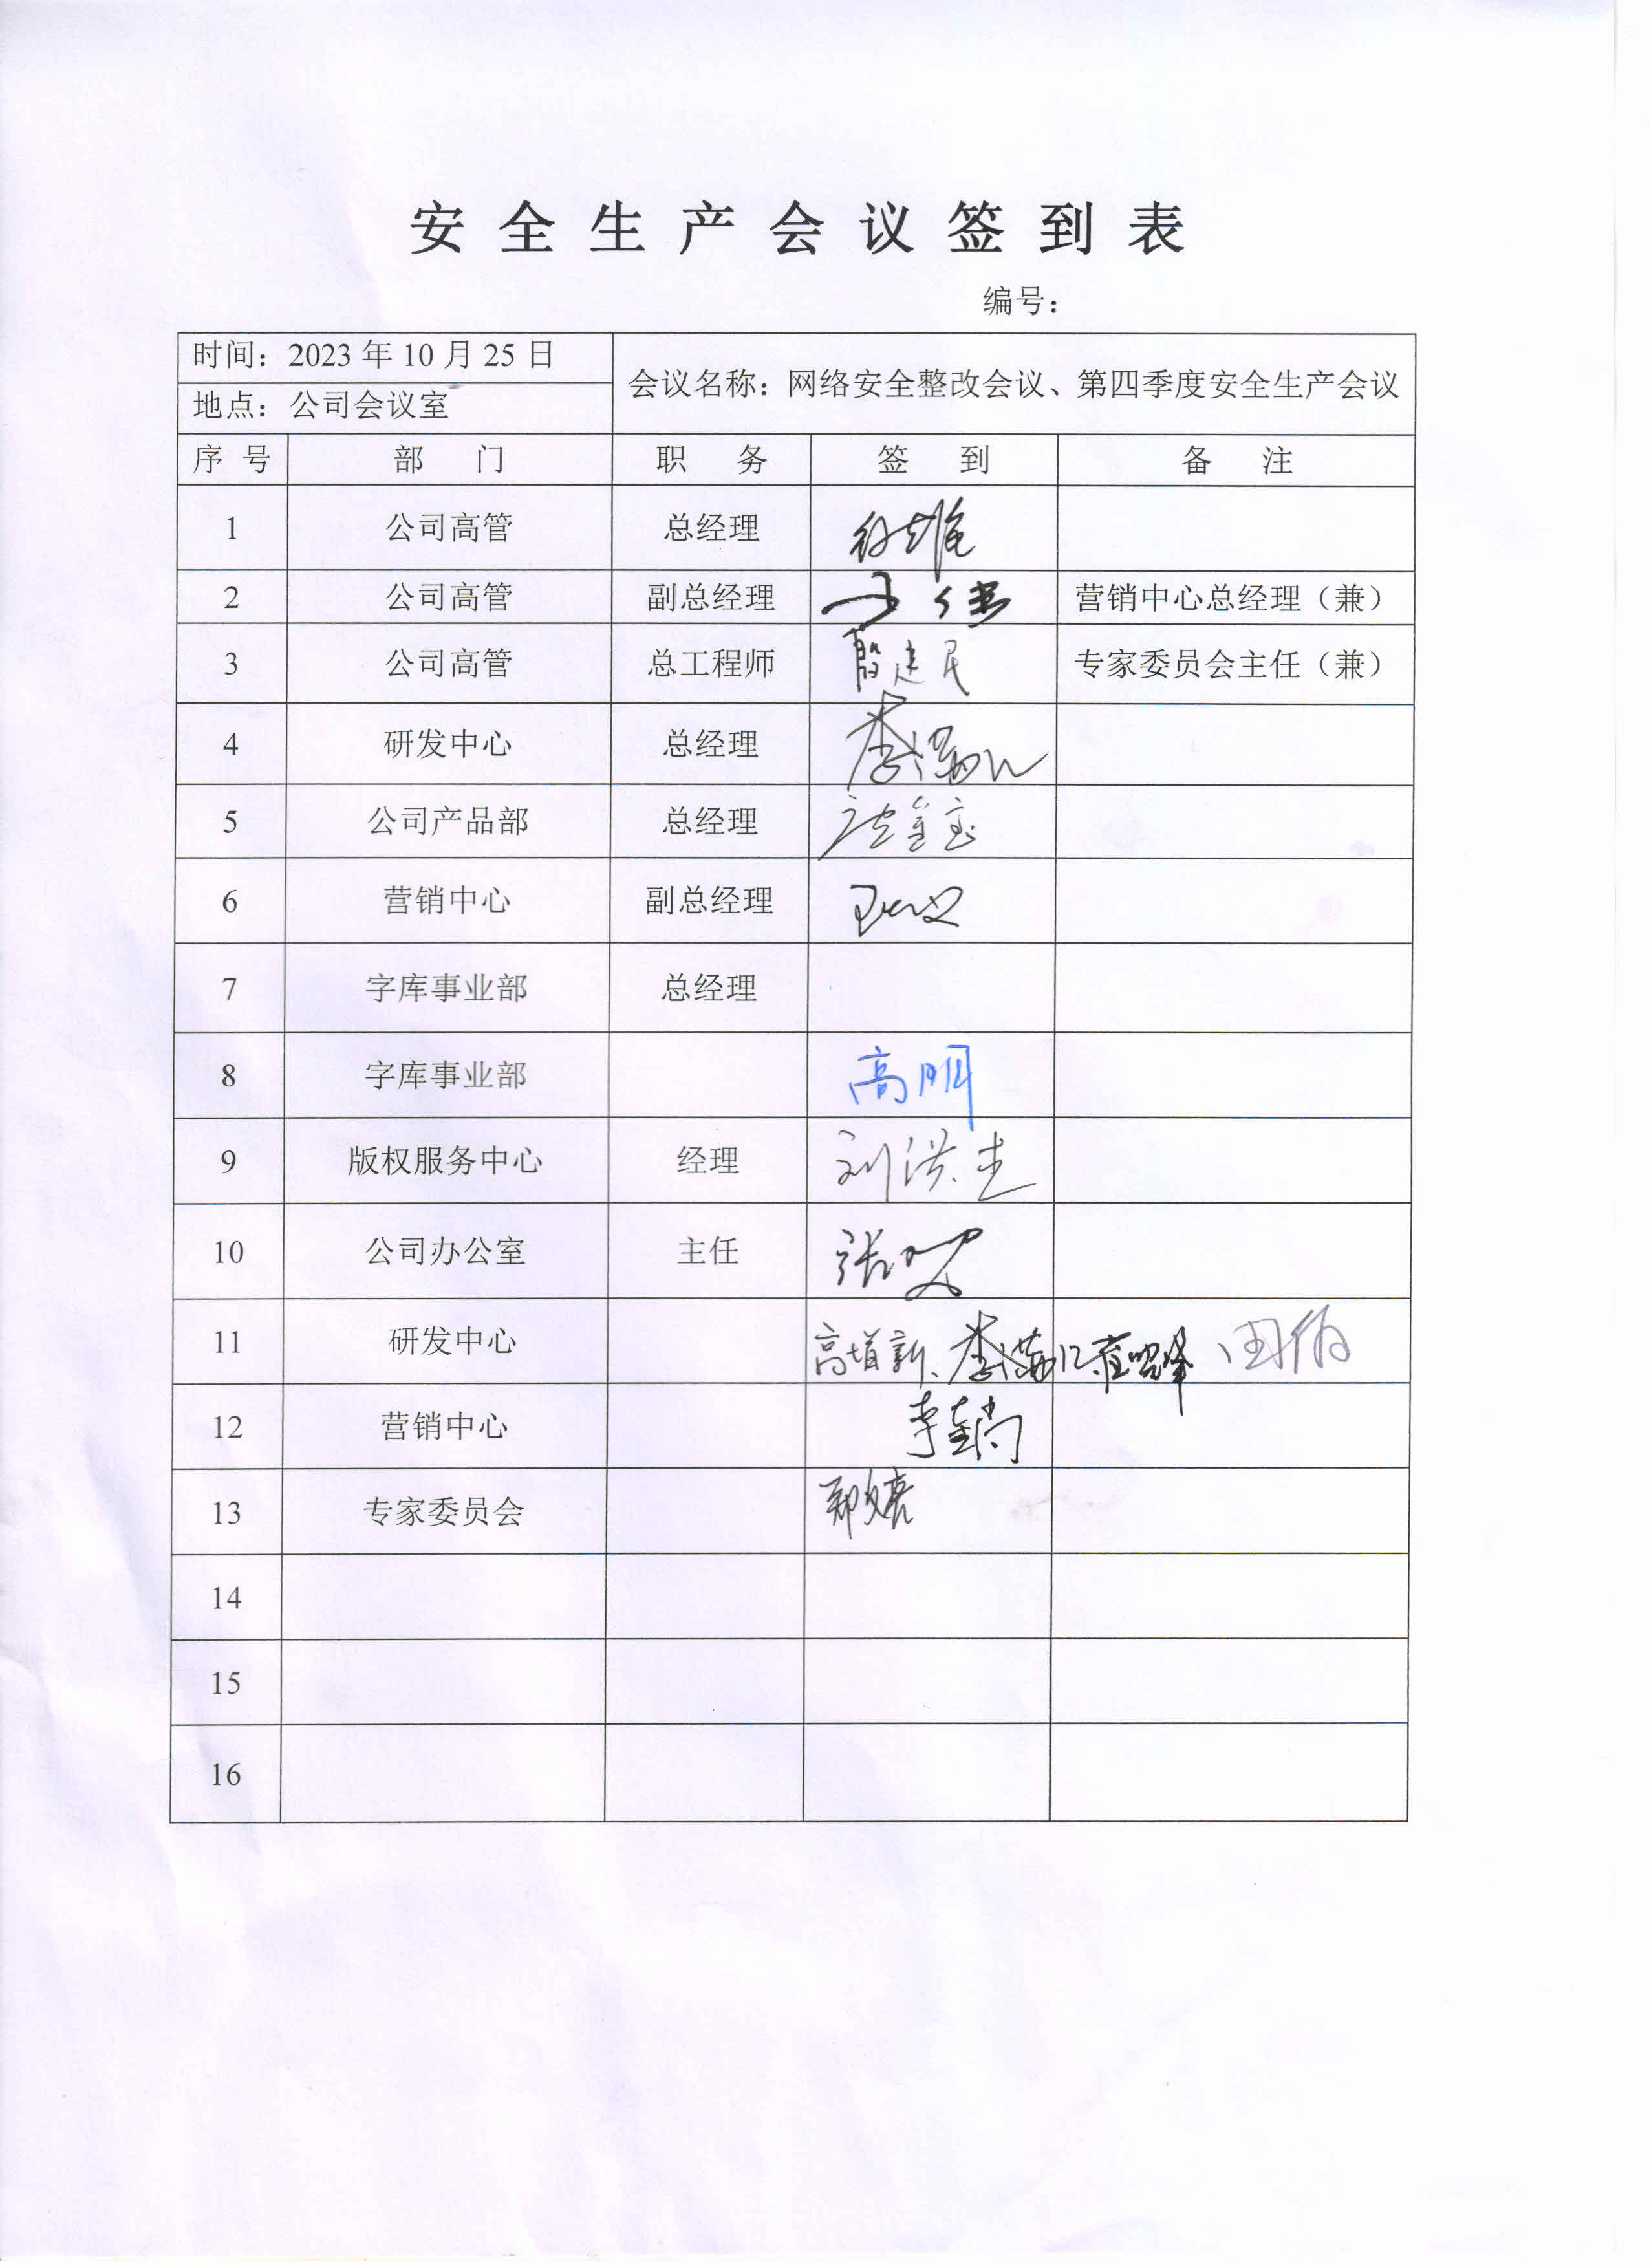 安全生产会议签到表
编号：
时间：2023年10月25日
会议名称：网络安全整改会议、第四季度安全生产会议
地点：公司会议室
序号 部门 职务 签到 备注
1 公司高管 总经理
2 公司高管 副总经理 营销中心总经理（兼）
3 公司高管 总工程师 殷建民 专家委员会主任（兼）
4 研发中心 总经理 李
5 公司产品部 总经理
6 营销中心 副总经理 王
7 字库事业部 总经理
8 字库事业部 高明
9 版权服务中心 经理 刘洪
10 公司办公室 主任 张
11 研发中心 高增新、李
12 营销中心 李
13 专家委员会 郑
14
15
16